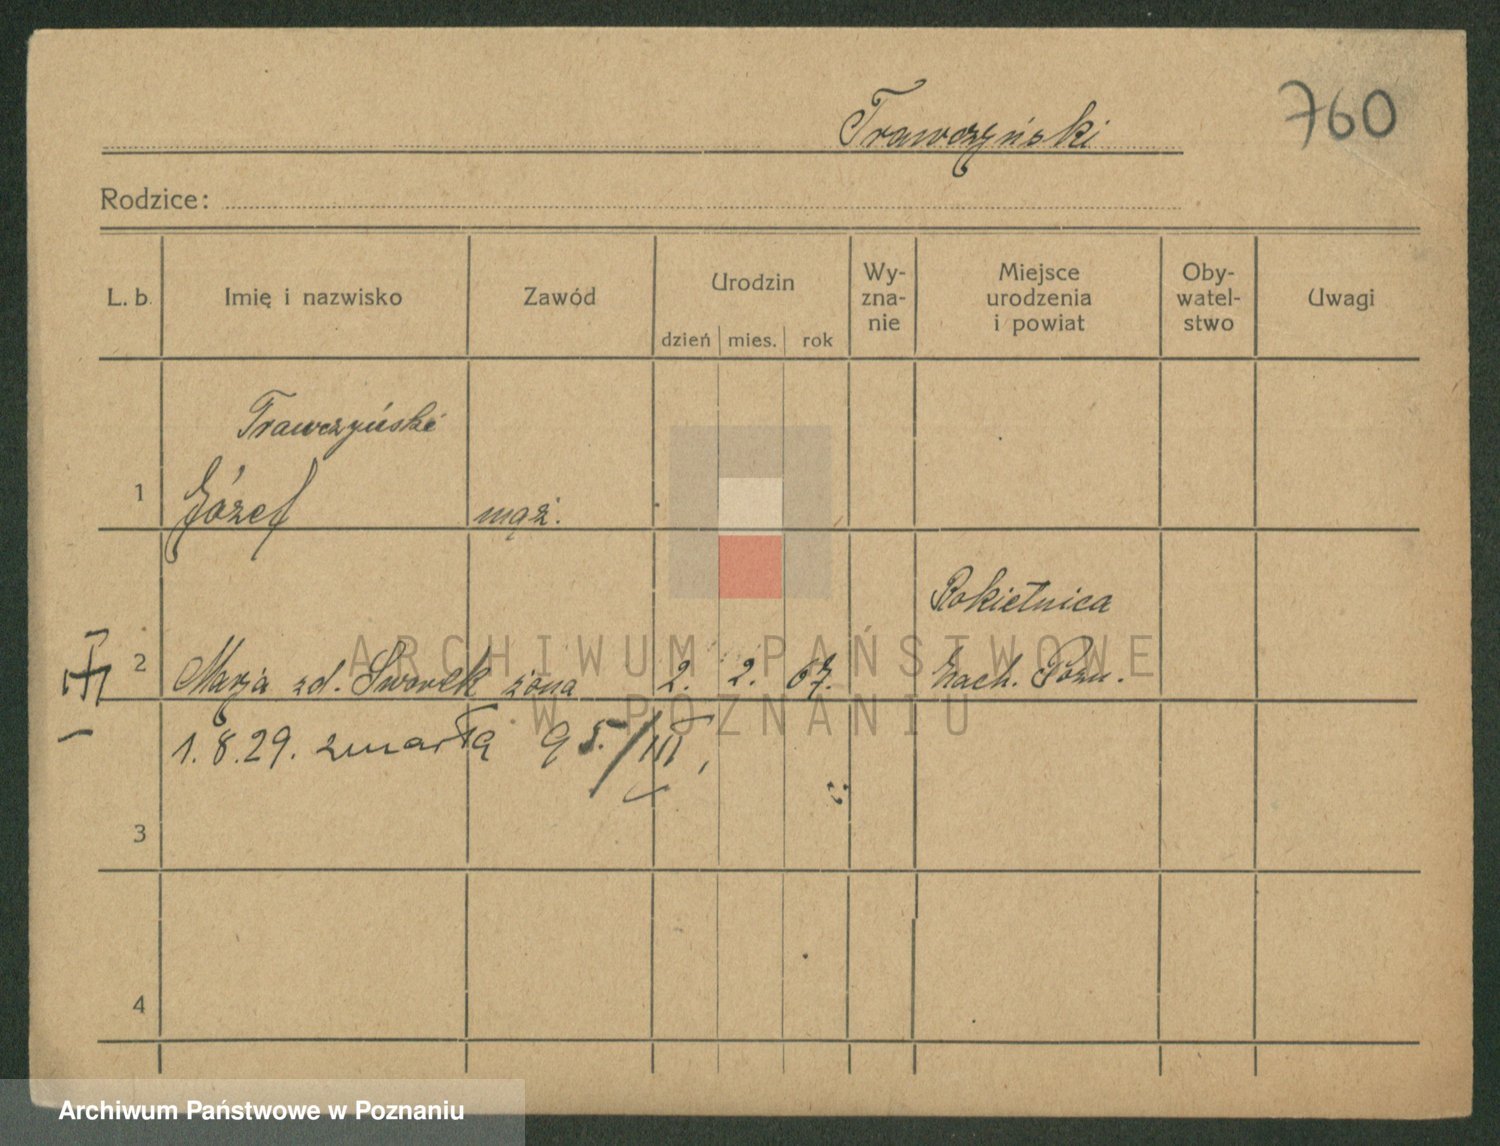 Trawczyński
760
Rodzice:
L. b. Imię i nazwisko Zawód Urodzin dzień mies. rok Wy-zna-nie Miejsce urodzenia i powiat Oby-watel-stwo Uwagi
Trawczyński
1 Józef mąż.
Rokietnica
2 Marja zd. Sworek żona 2. 2. 67. Zach. Pozn.
1.8.29. zmarła 95./III,
3
4
ARCHIWUM PAŃSTWOWE
W POZNANIU
Archiwum Państwowe w Poznaniu